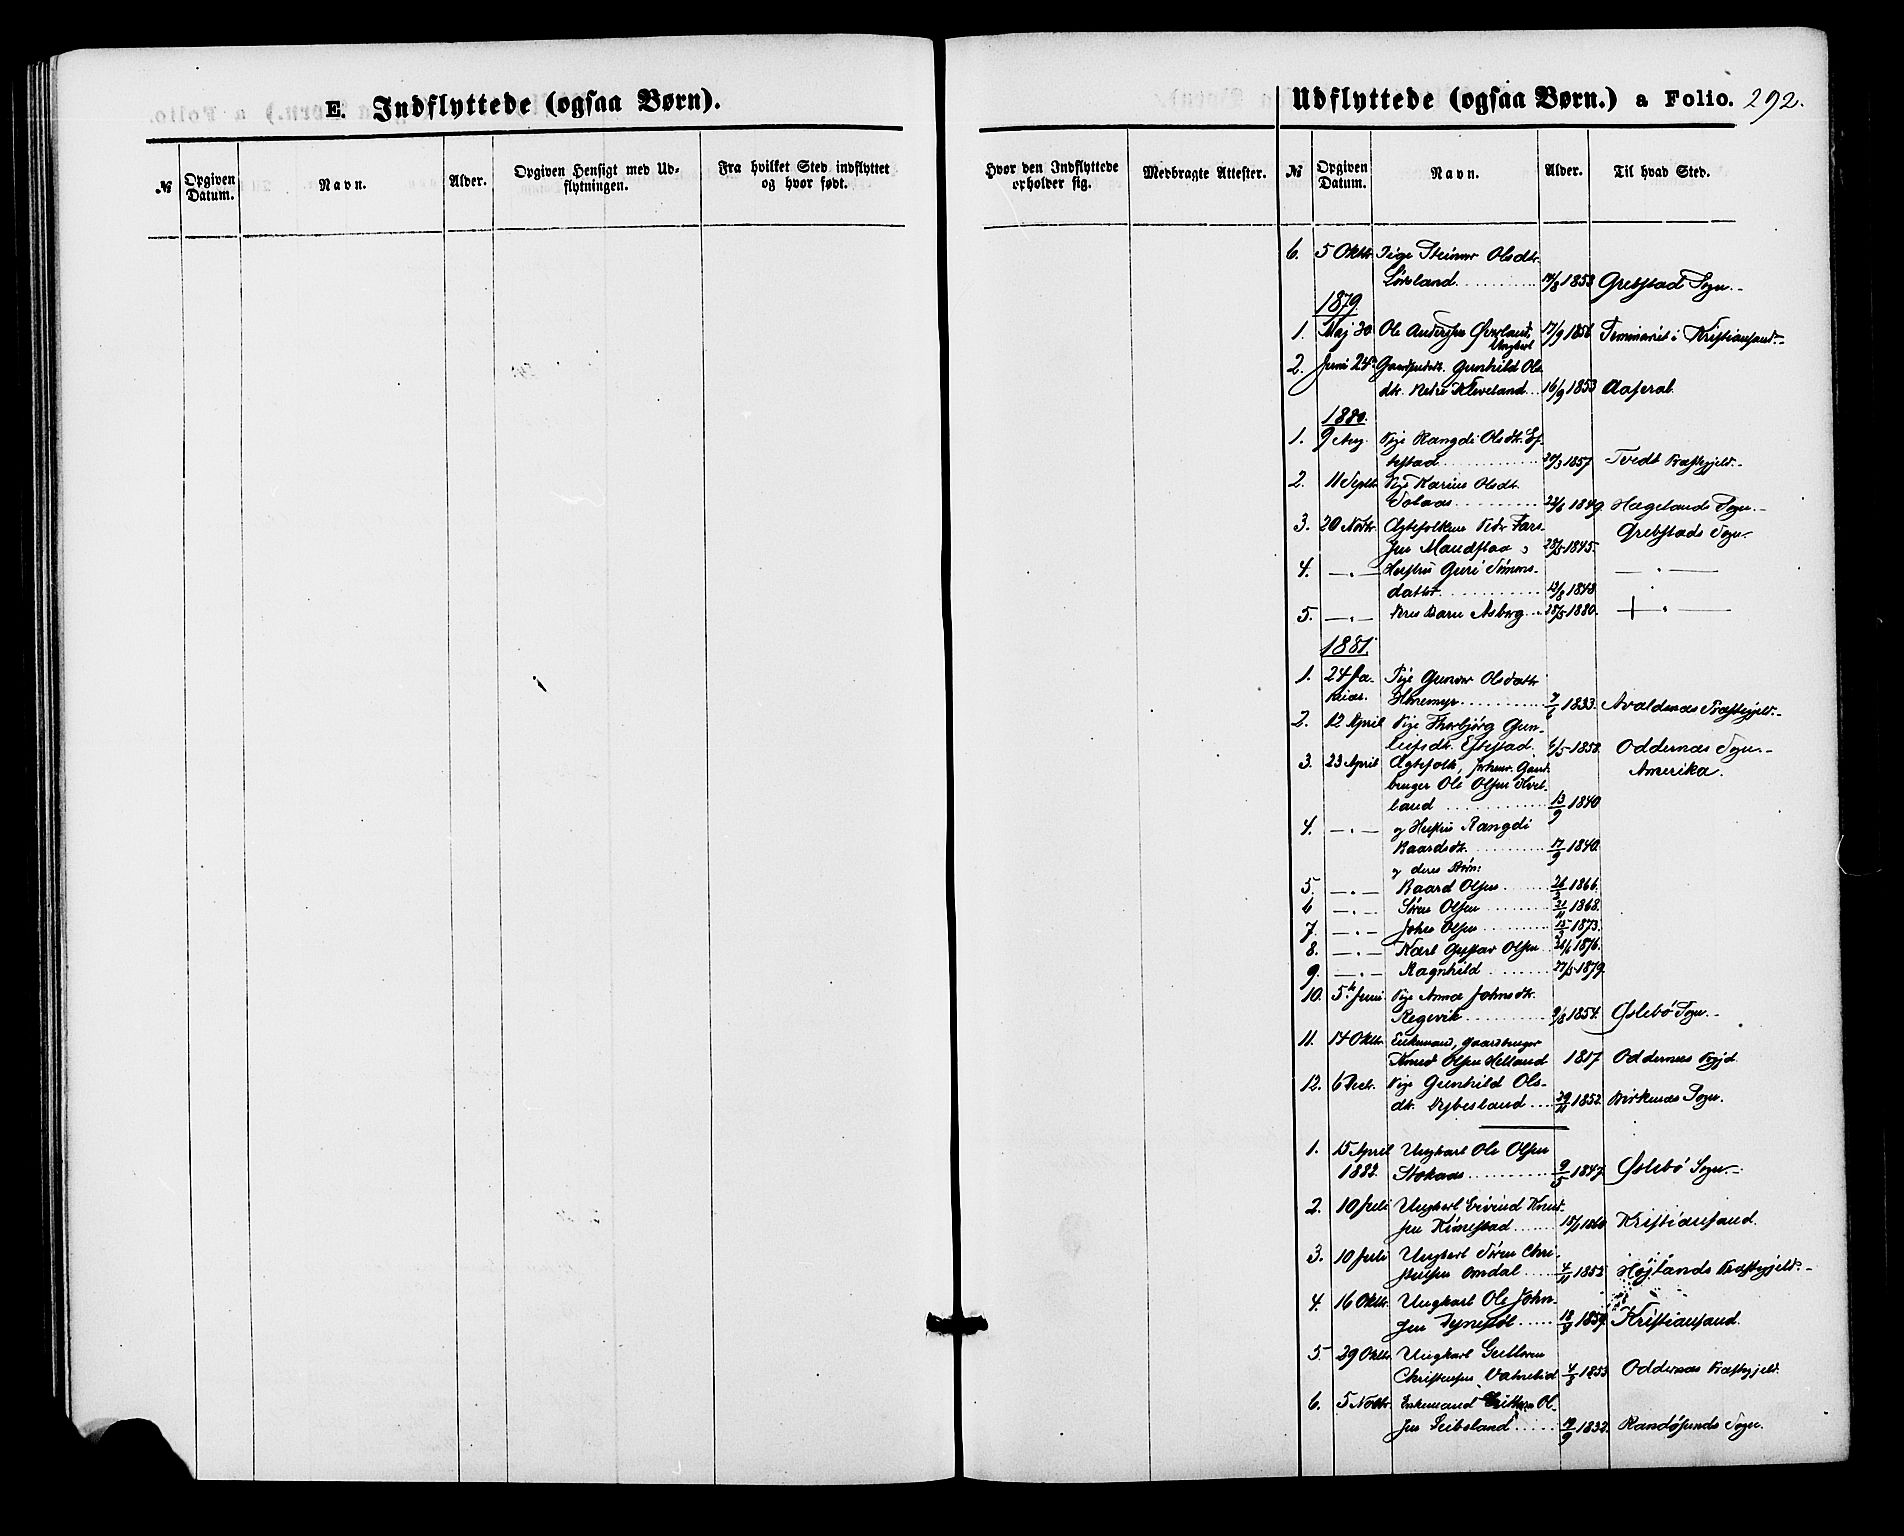 E. Indflyttede (ogsaa Børn).
Udflyttede (ogsaa Børn.) a Folio. 292.
№ Opgiven Datum. Navn. Alder. Opgiven Hensigt med Udflytningen. Fra hvilket Sted indflyttet og hvor født.
Hvor den Indflyttede opholder sig. Medbragte Attester. № Opgiven Datum. Navn. Alder. Til hvad Sted.
6. 5 Oktbr. Pige Steinvor Olsdtr.
14/8 1858 Grebstad Sogn.
1879
1. Maj 30 Ole Andersen Øvland, 17/9 1856 Seminariet i Kristiansand.
Ungkarl
2. Juni 24 Gunhild Ols
dtr. Nedre Kleveland 16/9 1853 Aaseral.
1880.
1. 9 Aug. Pige Rangdi Olsdtr. Ef-
testad 1857 Tvedt Præstegjeld.
2. 11 Septbr. Pige Karine Olsdt.
Solaas 1849. Hægelands Sogn.
3. 20 Novbr. Ægtefolkene Peder Lars- Grebstads Sogn.
sen Mandflaa, 28/5 1845.
4. — . — Hustru Guri Simons- — . —
datter. 13/8 1848
5. — . — Deres Barn Asborg 25/5 1880. — . —
1881.
1. 24 Ja- Pige Gunvor Olsdatter
nuar. 7/6 1833. Avaldsnes Præstegjeld.
2. 12 April Pige Thorbjørg Gun-
leifsdtr. Eftestad. 6/5 1858. Oddernæs Sogn.
3. 23 April Ægtefolk, forhenv. Gaard- Amerika.
bruger Ole Olsen Kvel-
land 13/9 1840
4. — . — og Hustru Rangdi
Baardsdtr. 17/9 1840.
og deres Børn:
5. — . — Baard Olsen 1866.
6 — . — Søren Olsen 1868.
7. — . — Johan Olsen 1873.
8. — . — Karl Gustav Olsen 1876.
9. — . — Ragnhild 27/5 1879.
10. 5. Juni Pige Anna Johnsdtr.
Regevik 9/8 1854. Øslebø Sogn.
11. 14 Oktbr. Enkemand, Gaardbruger
Knud Olsen Helland 1817 Oddernæs Prgjd
12. 6 Decb. Pige Gunhild Ols-
dtr. Vybesland 29/11 1852. Birkenæs Sogn.
1. 15 April Ungkarl Ole Olsen
1882. Stokaas 9/5 1847. Øslebø Sogn.
2. 10 Juli Ungkarl Eivind Knud-
sen Kinestad 1860 Kristiansand.
3. 10 Juli Ungkarl Søren Chri-
stensen Omdal 4/11 1855 Højlands Præstegjeld.
4. 16 Oktbr. Ungkarl Ole John-
sen 18/8 1859. Kristiansand.
5. 29 Oktbr. Ungkarl Guttorm
Christensen Vatnelid 4/8 1853 Oddernæs Præstegjeld.
6. 5 Novbr. Enkemand Guttorm Ol-
sen Leibsland 19/9 1832. Randøsunds Sogn.